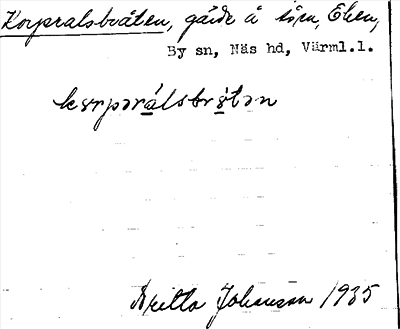 Korpralsbråten, gärde å torp, Eken,
By sn, Näs hd, Värml.l.
korporálsbrɷ́tən
Britta Johansson 1935